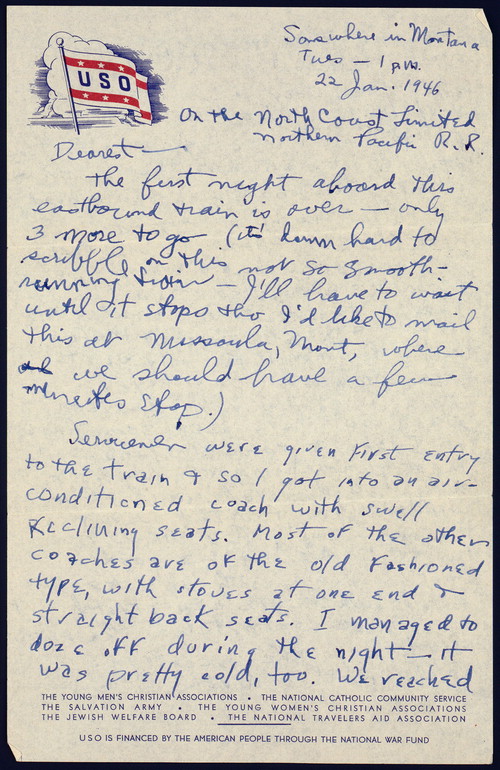 USO
Somewhere in Montana
Tues – 1 p.m.
22 Jan. 1946
On the North Coast Limited
Northern Pacific R.R.
Dearest —
The first night aboard this
eastbound train is over — only
3 more to go (it's damn hard to
scribble on this not so smooth-
running train — I'll have to wait
until it stops tho I'd like to mail
this at Missoula, Mont, where
we should have a few
minutes stop.)
Servicemen were given first entry
to the train & so I got into an air-
conditioned coach with swell
reclining seats. Most of the other
coaches are of the old fashioned
type, with stoves at one end &
straight back seats. I managed to
doze off during the night — it
was pretty cold, too. We reached
THE YOUNG MEN'S CHRISTIAN ASSOCIATIONS • THE NATIONAL CATHOLIC COMMUNITY SERVICE
THE SALVATION ARMY • THE YOUNG WOMEN'S CHRISTIAN ASSOCIATIONS
THE JEWISH WELFARE BOARD • THE NATIONAL TRAVELERS AID ASSOCIATION
USO IS FINANCED BY THE AMERICAN PEOPLE THROUGH THE NATIONAL WAR FUND